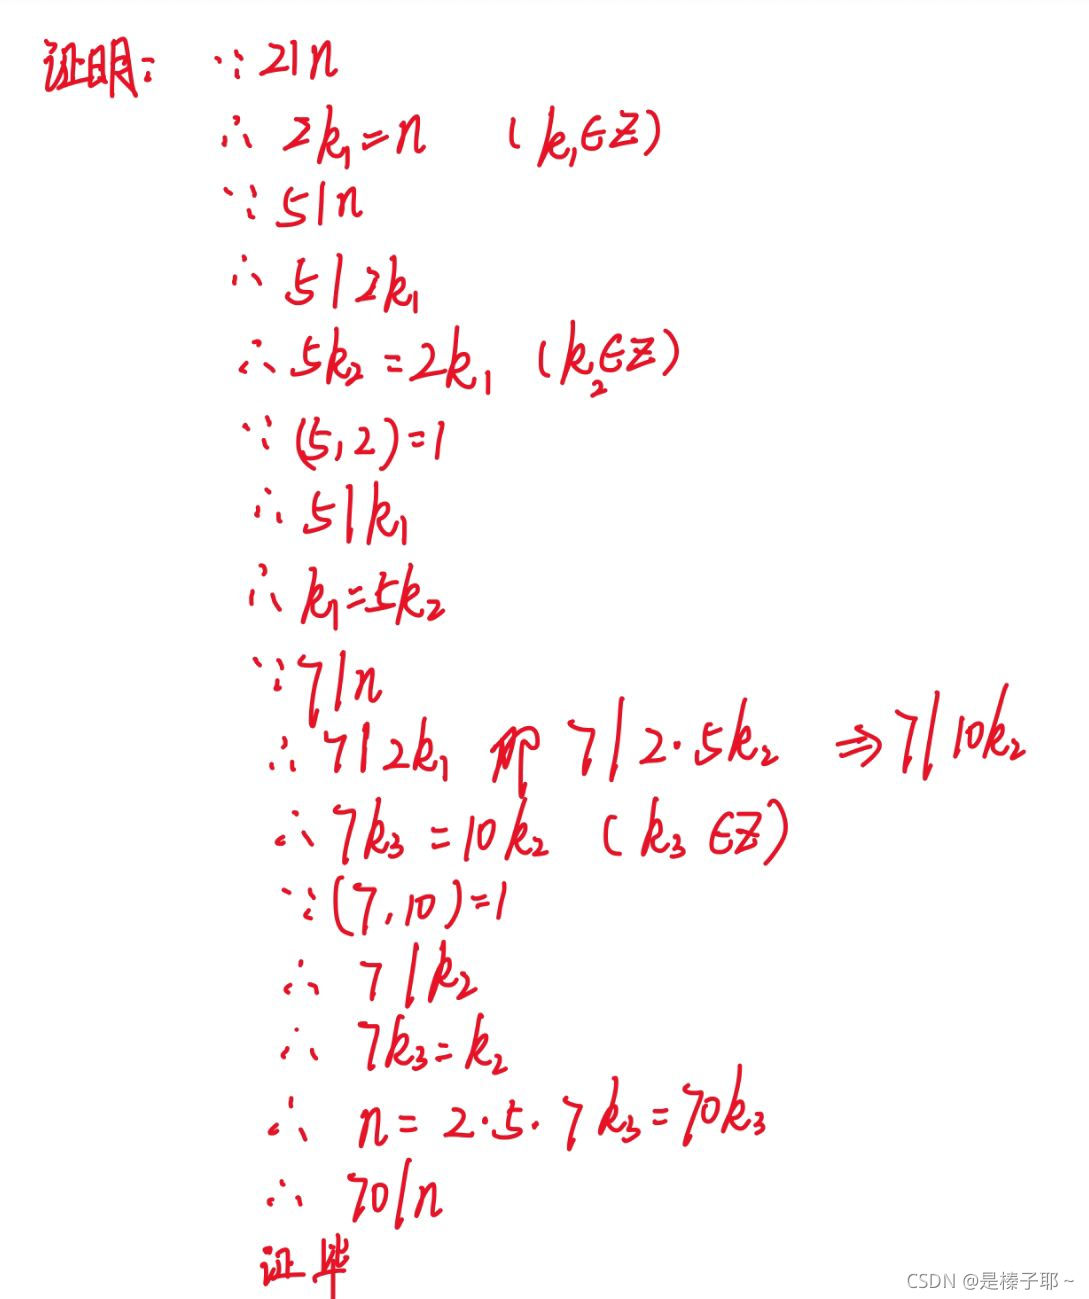 证明: ∵ 2|n
∴ 2k₁=n (k₁∈Z)
∵ 5|n
∴ 5|2k₁
∴ 5k₂=2k₁ (k₂∈Z)
∵ (5,2)=1
∴ 5|k₁
∴ k₁=5k₂
∵ 7|n
∴ 7|2k₁ 即 7|2·5k₂ ⇒ 7|10k₂
∴ 7k₃=10k₂ (k₃∈Z)
∵ (7,10)=1
∴ 7|k₂
∴ 7k₃=k₂
∴ n=2·5·7k₃=70k₃
∴ 70|n
证毕
CSDN @是榛子耶~